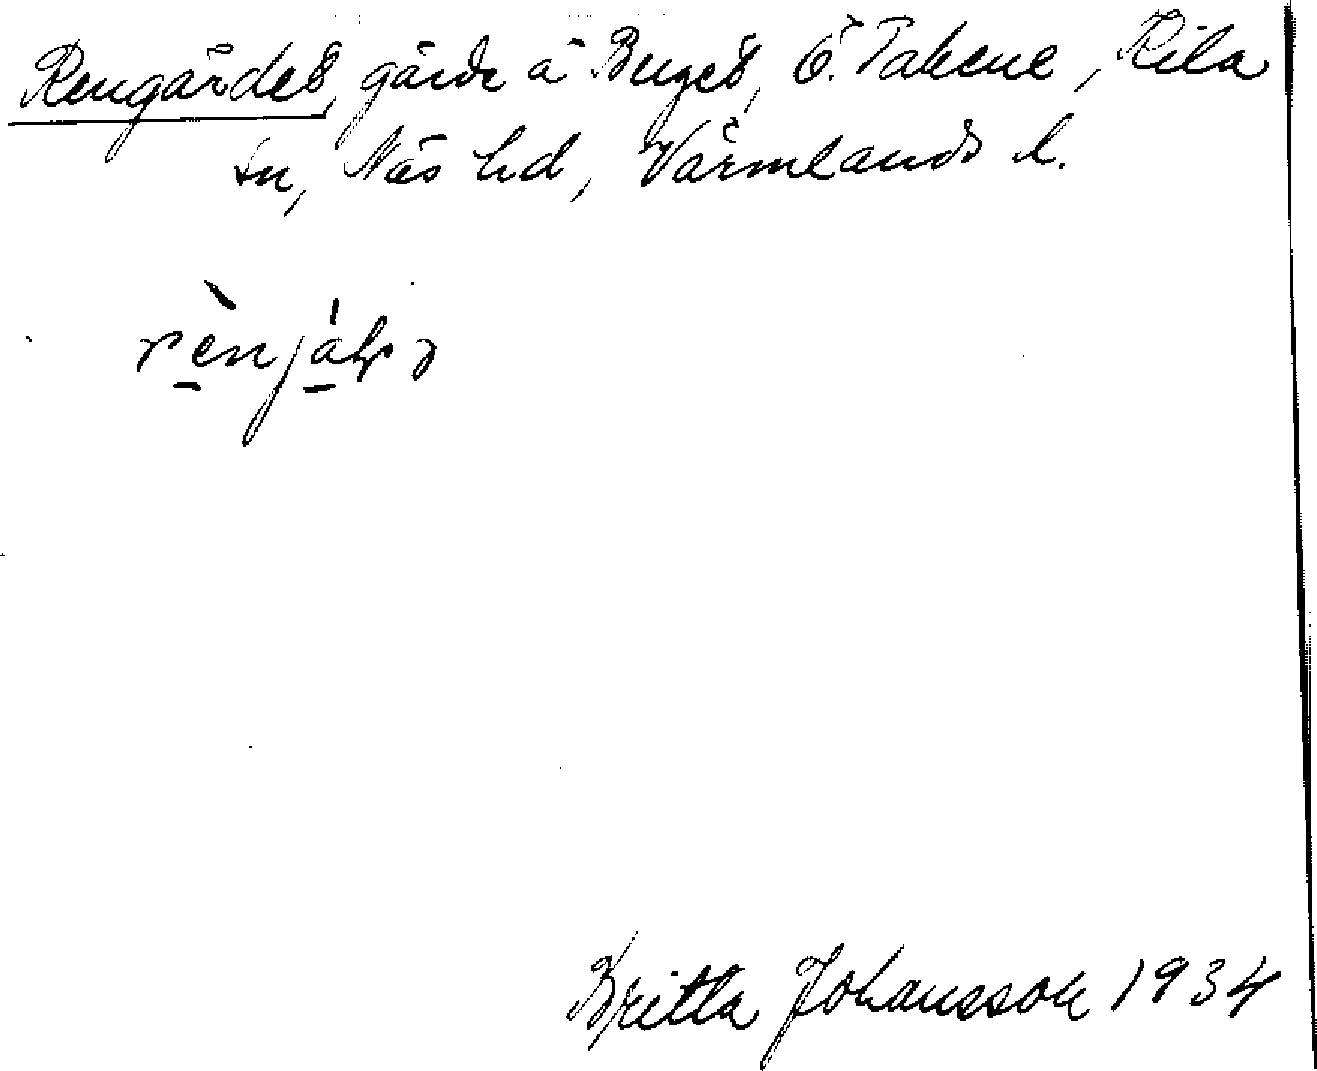 Rengärdet, gärde å Berget, Ö. Takene, Kila
sn, Näs hd, Värmlands l.
Britta Johansson 1934